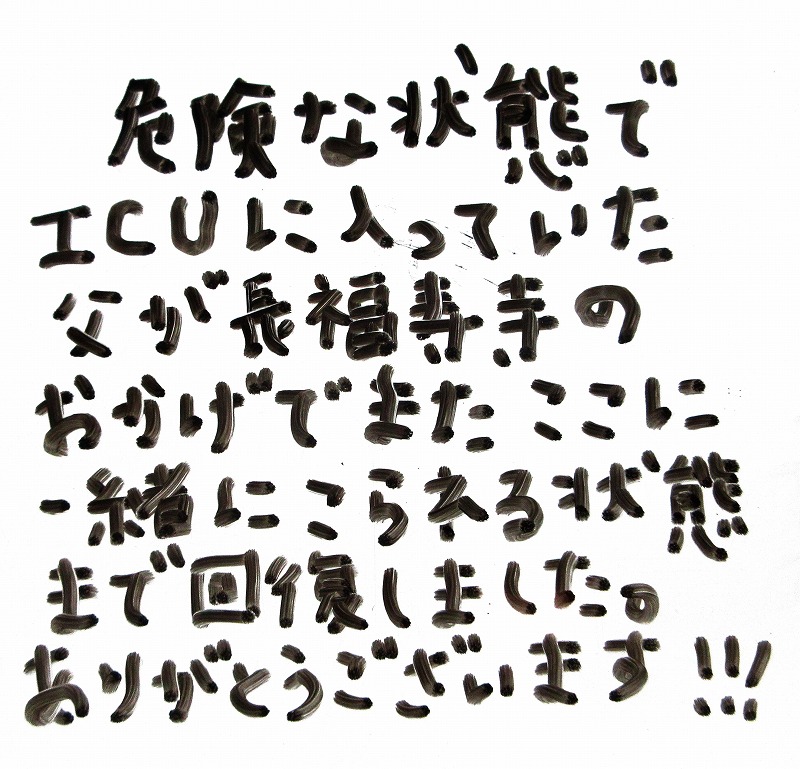 危険な状態で
ICUに入っていた
父が長福寿寺の
おかげでまたここに
一緒にこらえる状態
まで回復しました。
ありがとうございます!!!